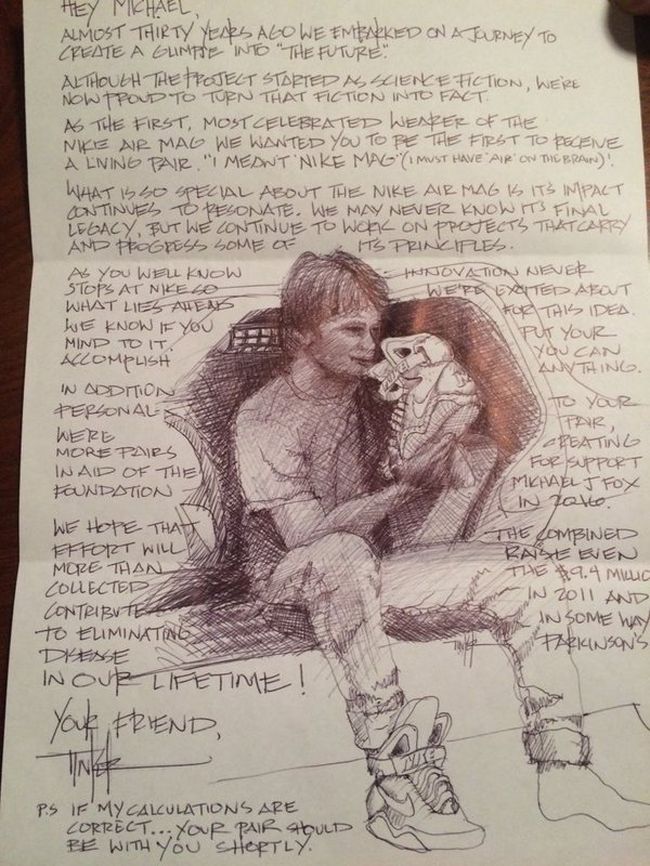 HEY MICHAEL,
ALMOST THIRTY YEARS AGO WE EMBARKED ON A JOURNEY TO
CREATE A GLIMPSE INTO "THE FUTURE".
ALTHOUGH THE PROJECT STARTED AS SCIENCE FICTION, WE'RE
NOW PROUD TO TURN THAT FICTION INTO FACT.
AS THE FIRST, MOST CELEBRATED WEARER OF THE
NIKE AIR MAG WE WANTED YOU TO BE THE FIRST TO RECEIVE
A LIVING PAIR. "I MEANT 'NIKE MAG' (I MUST HAVE 'AIR' ON THE BRAIN)!
WHAT IS SO SPECIAL ABOUT THE NIKE AIR MAG IS ITS IMPACT
CONTINUES TO RESONATE. WE MAY NEVER KNOW IT'S FINAL
LEGACY, BUT WE CONTINUE TO WORK ON PROJECTS THAT CARRY
AND PROGRESS SOME OF ITS PRINCIPLES.
AS YOU WELL KNOW INNOVATION NEVER
STOPS AT NIKE SO WE'RE EXCITED ABOUT
WHAT LIES AHEAD FOR THIS IDEA.
WE KNOW IF YOU PUT YOUR
MIND TO IT. YOU CAN
ACCOMPLISH ANYTHING.
IN ADDITION TO YOUR
PERSONAL PAIR,
WE'RE CREATING
MORE PAIRS FOR SUPPORT
IN AID OF THE MICHAEL J FOX
FOUNDATION IN 2016.
WE HOPE THAT THE COMBINED
EFFORT WILL RAISE EVEN
MORE THAN THE $9.4 MILLIO
COLLECTED IN 2011 AND
CONTRIBUTE IN SOME WAY
TO ELIMINATING PARKINSON'S
DISEASE
IN OUR LIFETIME!
YOUR FRIEND,
TINKER
P.S IF MY CALCULATIONS ARE
CORRECT... YOUR PAIR SHOULD
BE WITH YOU SHORTLY.